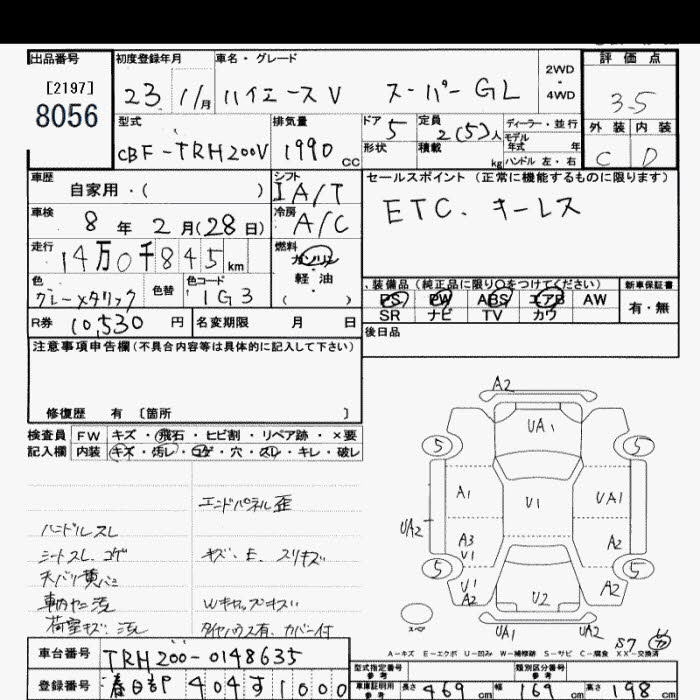 出品番号 初度登録年月 車名・グレード 評価点
[2197]
8056
23 11月 ハイエースV スーパーGL 2WD・4WD 3.5
型式 排気量 ドア 定員 ディーラー・並行 外装 内装
CBF-TRH200V 1990 CC 5 2(5)人 モデル年式 年 C D
形状 積載 kg ハンドル 左・右
車歴 シフト セールスポイント (正常に機能するものに限ります)
自家用・( ) IA/T ETC. キーレス
車検 冷房
8年 2月(28日) A/C
走行 燃料
14万0千845km ガソリン
軽油
( )
色 色替 色コード 装備品 (純正品に限り〇をつけてください) 新車保証書
グレーメタリック 1G3 PS PW ABS エアB AW 有・無
SR ナビ TV カワ
R券 10,530円 名変期限 月 日 後日品
注意事項申告欄(不具合内容等は具体的に記入して下さい)
修復歴 有 〔箇所 〕
検査員 FW キズ・飛石・ヒビ割・リペア跡・×要
記入欄 内装 キズ・汚レ・コゲ・穴・スレ・キレ・破レ
エンドパネル歪
ハンドルスレ
シートスレ.コゲ キズ、E、スリキズ
天バリ黄バミ
車内ヤニ汚 Wキャップキズ
荷室キズ・汚レ タイヤハウス有、カバー付
A2
UA1
5 5
A1 U1 UA1
UA2 A3 U1 A2
5 5
U1 A2 U2 A2
スペア
UA1 UA2
S7
A-キズ E-エクボ U-凹み W-補修跡 S-サビ C-腐食 XX-交換済
車台番号 TRH200-0148635
型式指定番号 参考 類別区分番号 参考
登録番号 春日部 404す1000
車庫証明用 参考 長さ 469cm 幅 169cm 高さ 198cm